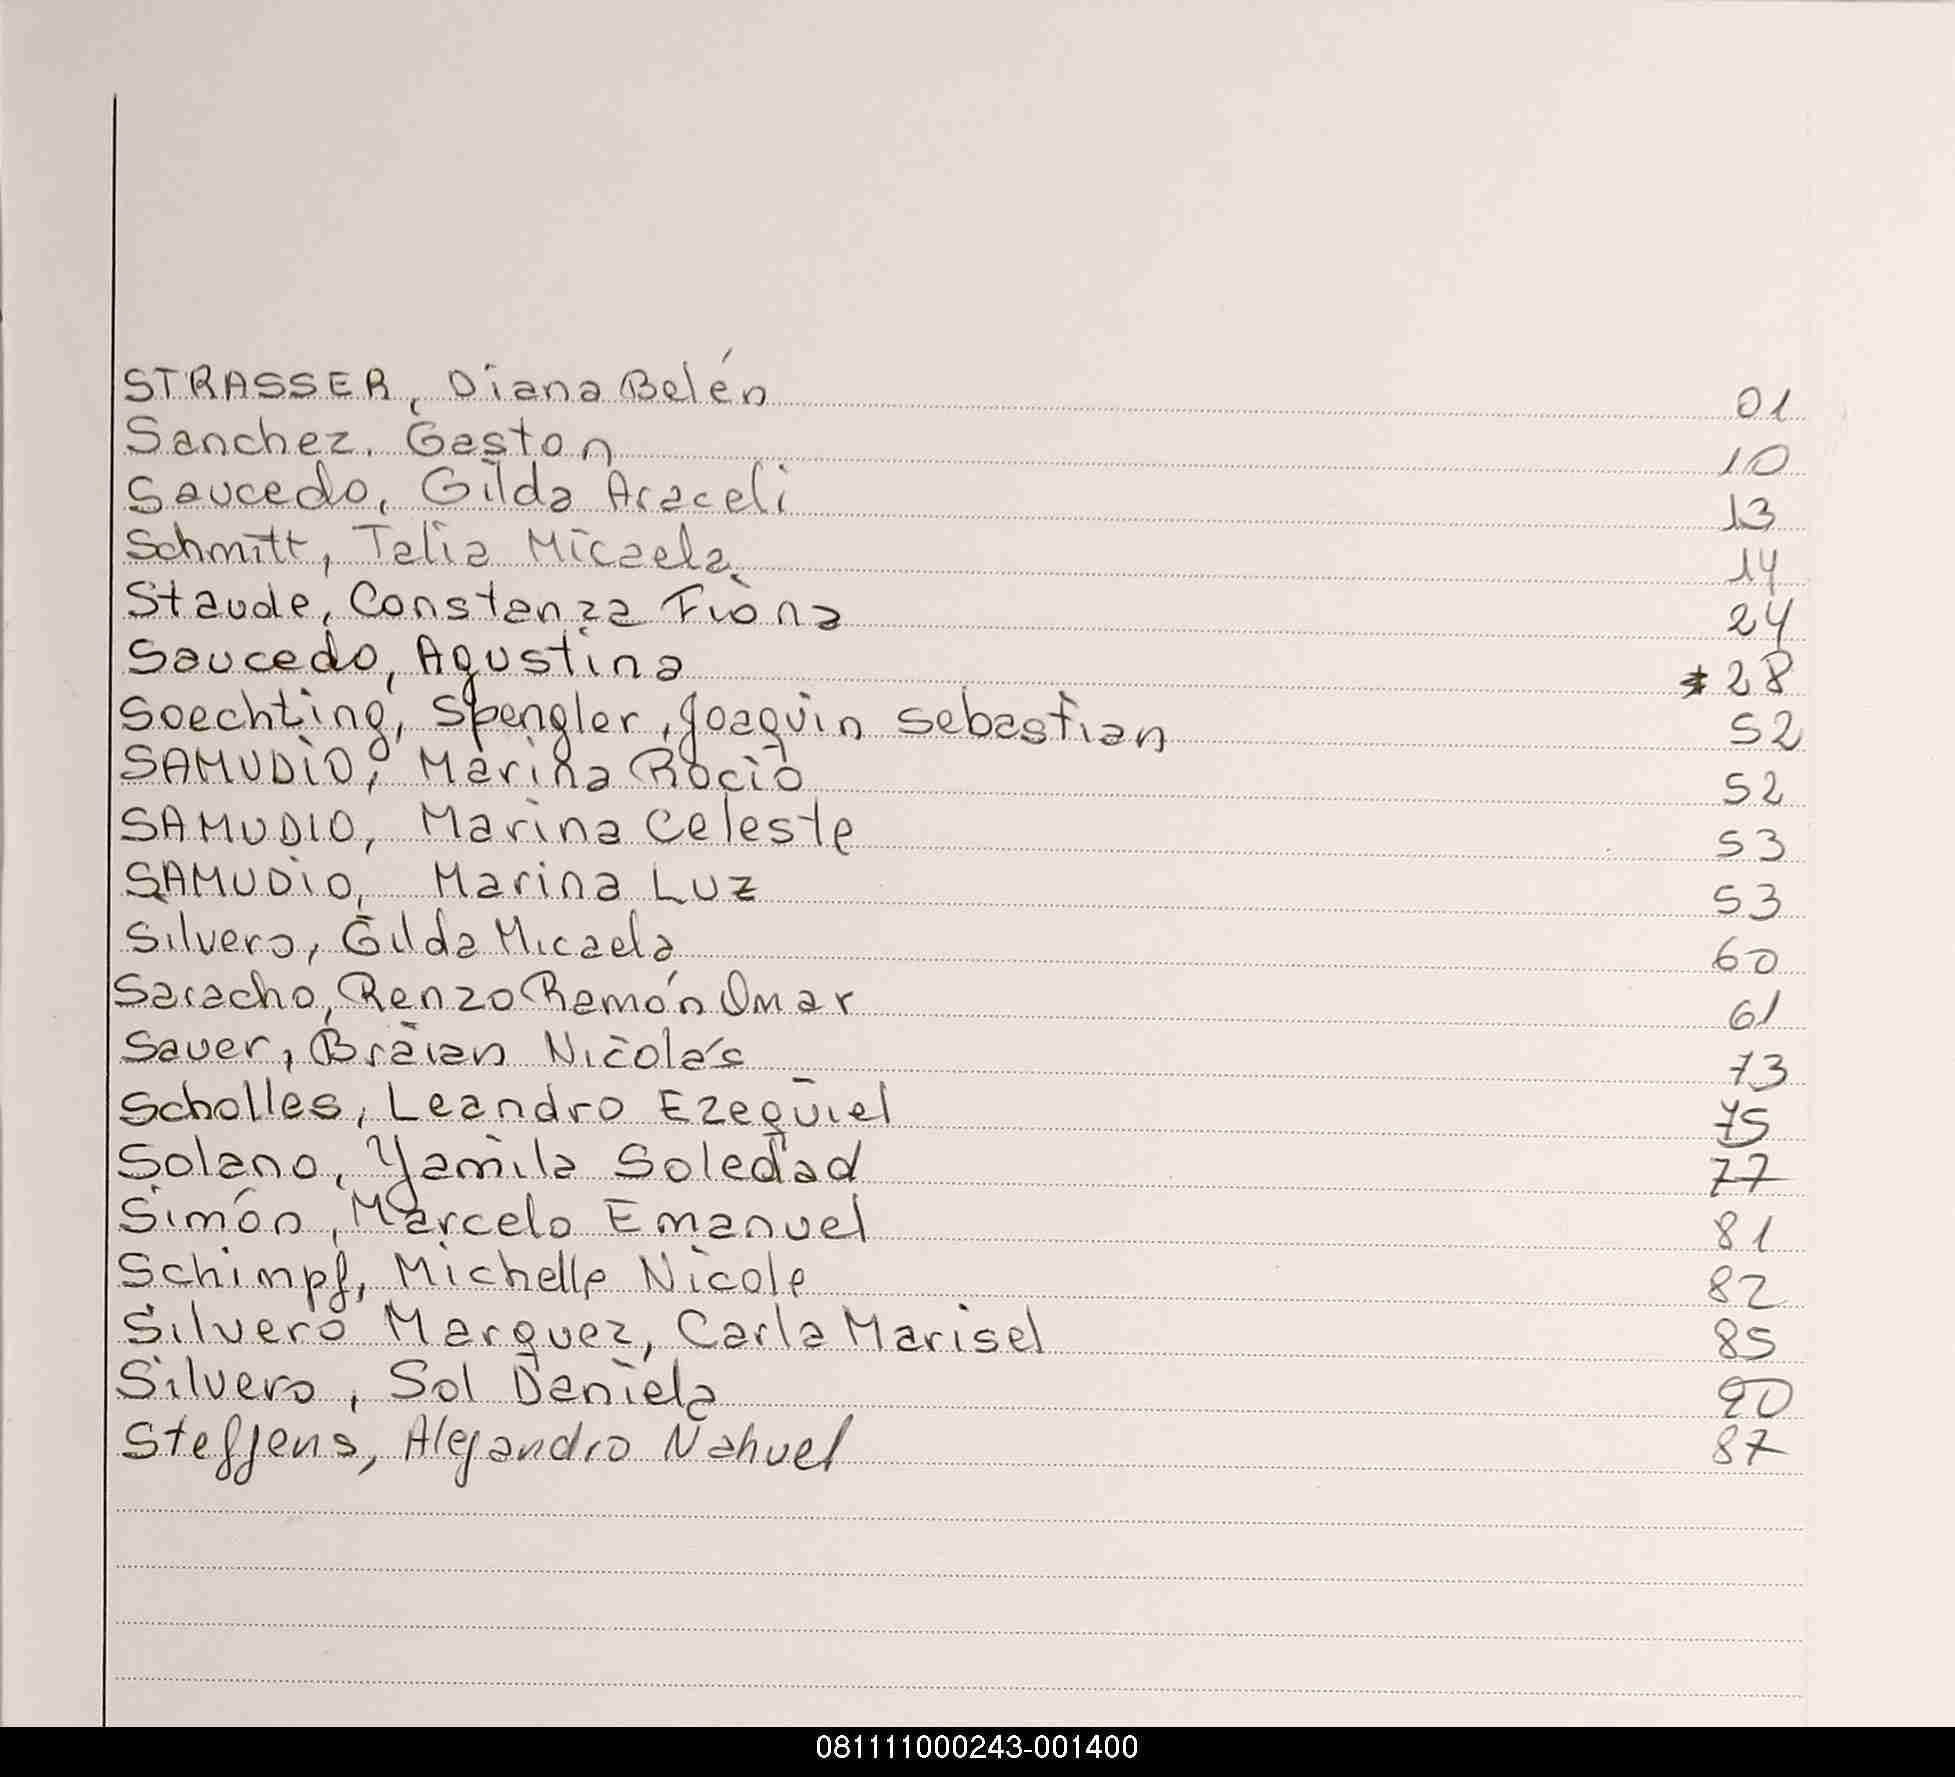 STRASSER, Diana Belén 01
Sanchez, Gaston 10
Saucedo, Gilda Araceli 13
Schmitt, Talia Micaela 14
Staude, Constanza Fiona 24
Saucedo, Agustina * 28
Soechting, Spengler, Joaquin Sebastian 52
SAMUDIO, Marina Rocio 52
SAMUDIO, Marina Celeste 53
SAMUDIO, Marina Luz 53
Silvero, Gilda Micaela 60
Saracho, Renzo Ramón Omar 61
Sauer, Braian Nicolás 73
Scholles, Leandro Ezequiel 75
Solano, Yamila Soledad 77
Simón, Marcelo Emanuel 81
Schimpf, Michelle Nicole 82
Silvero Marquez, Carla Marisel 85
Silvero, Sol Daniela 90
Steffens, Alejandro Nahuel 87
081111000243-001400